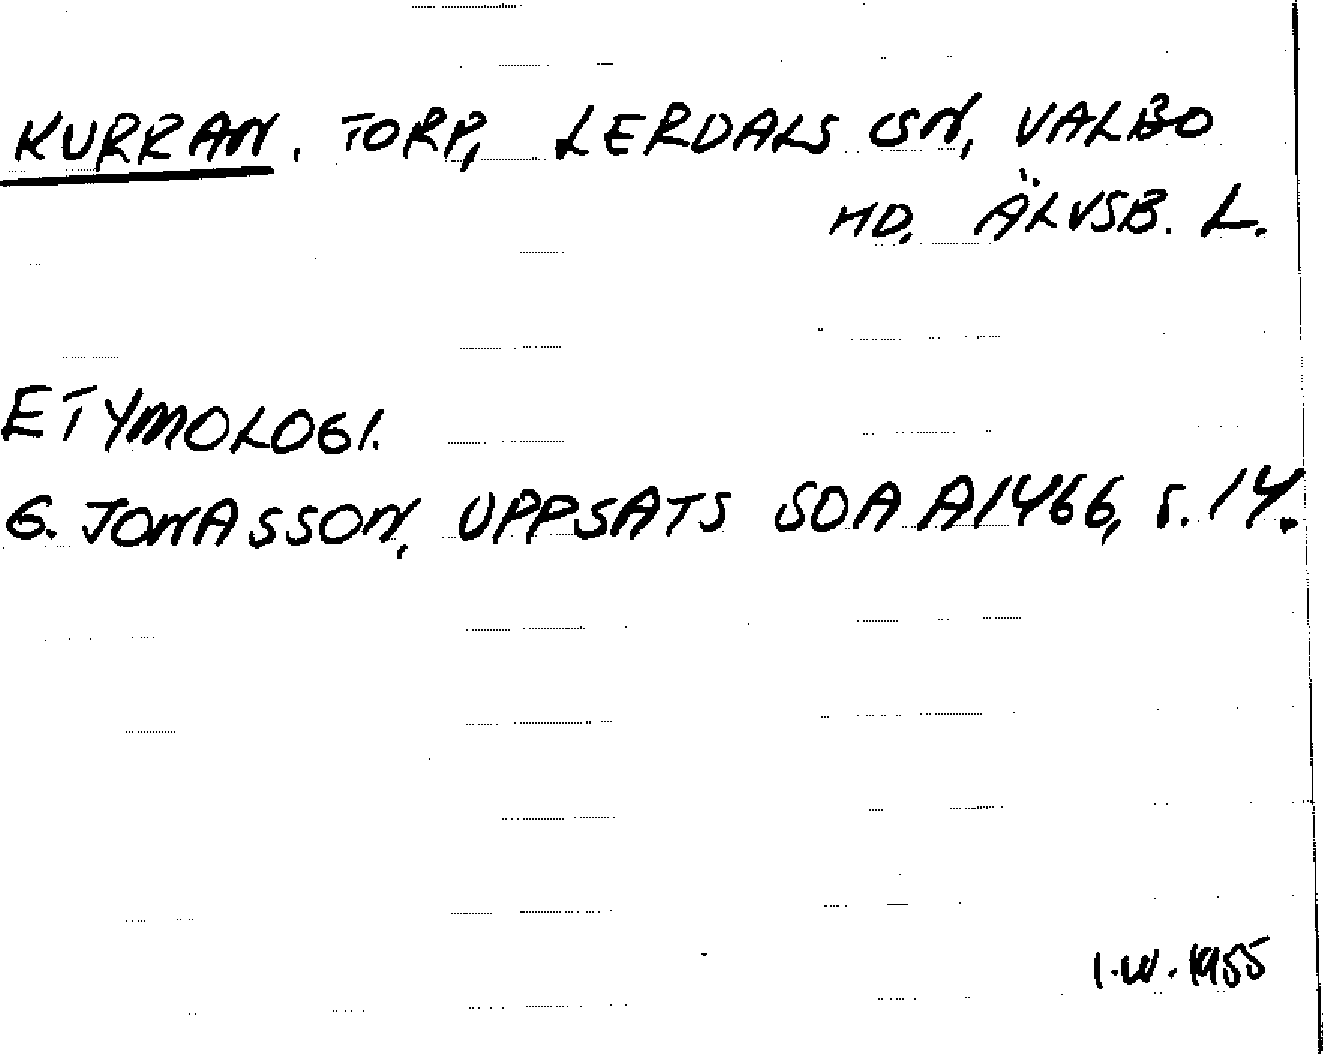 KURRAN. TORP, LERDALS SN, VALBO
HD, ÄLVSB. L.
ETYMOLOGI.
G. JONASSON, UPPSATS SOA A1466, S. 14.
I.W. 1955